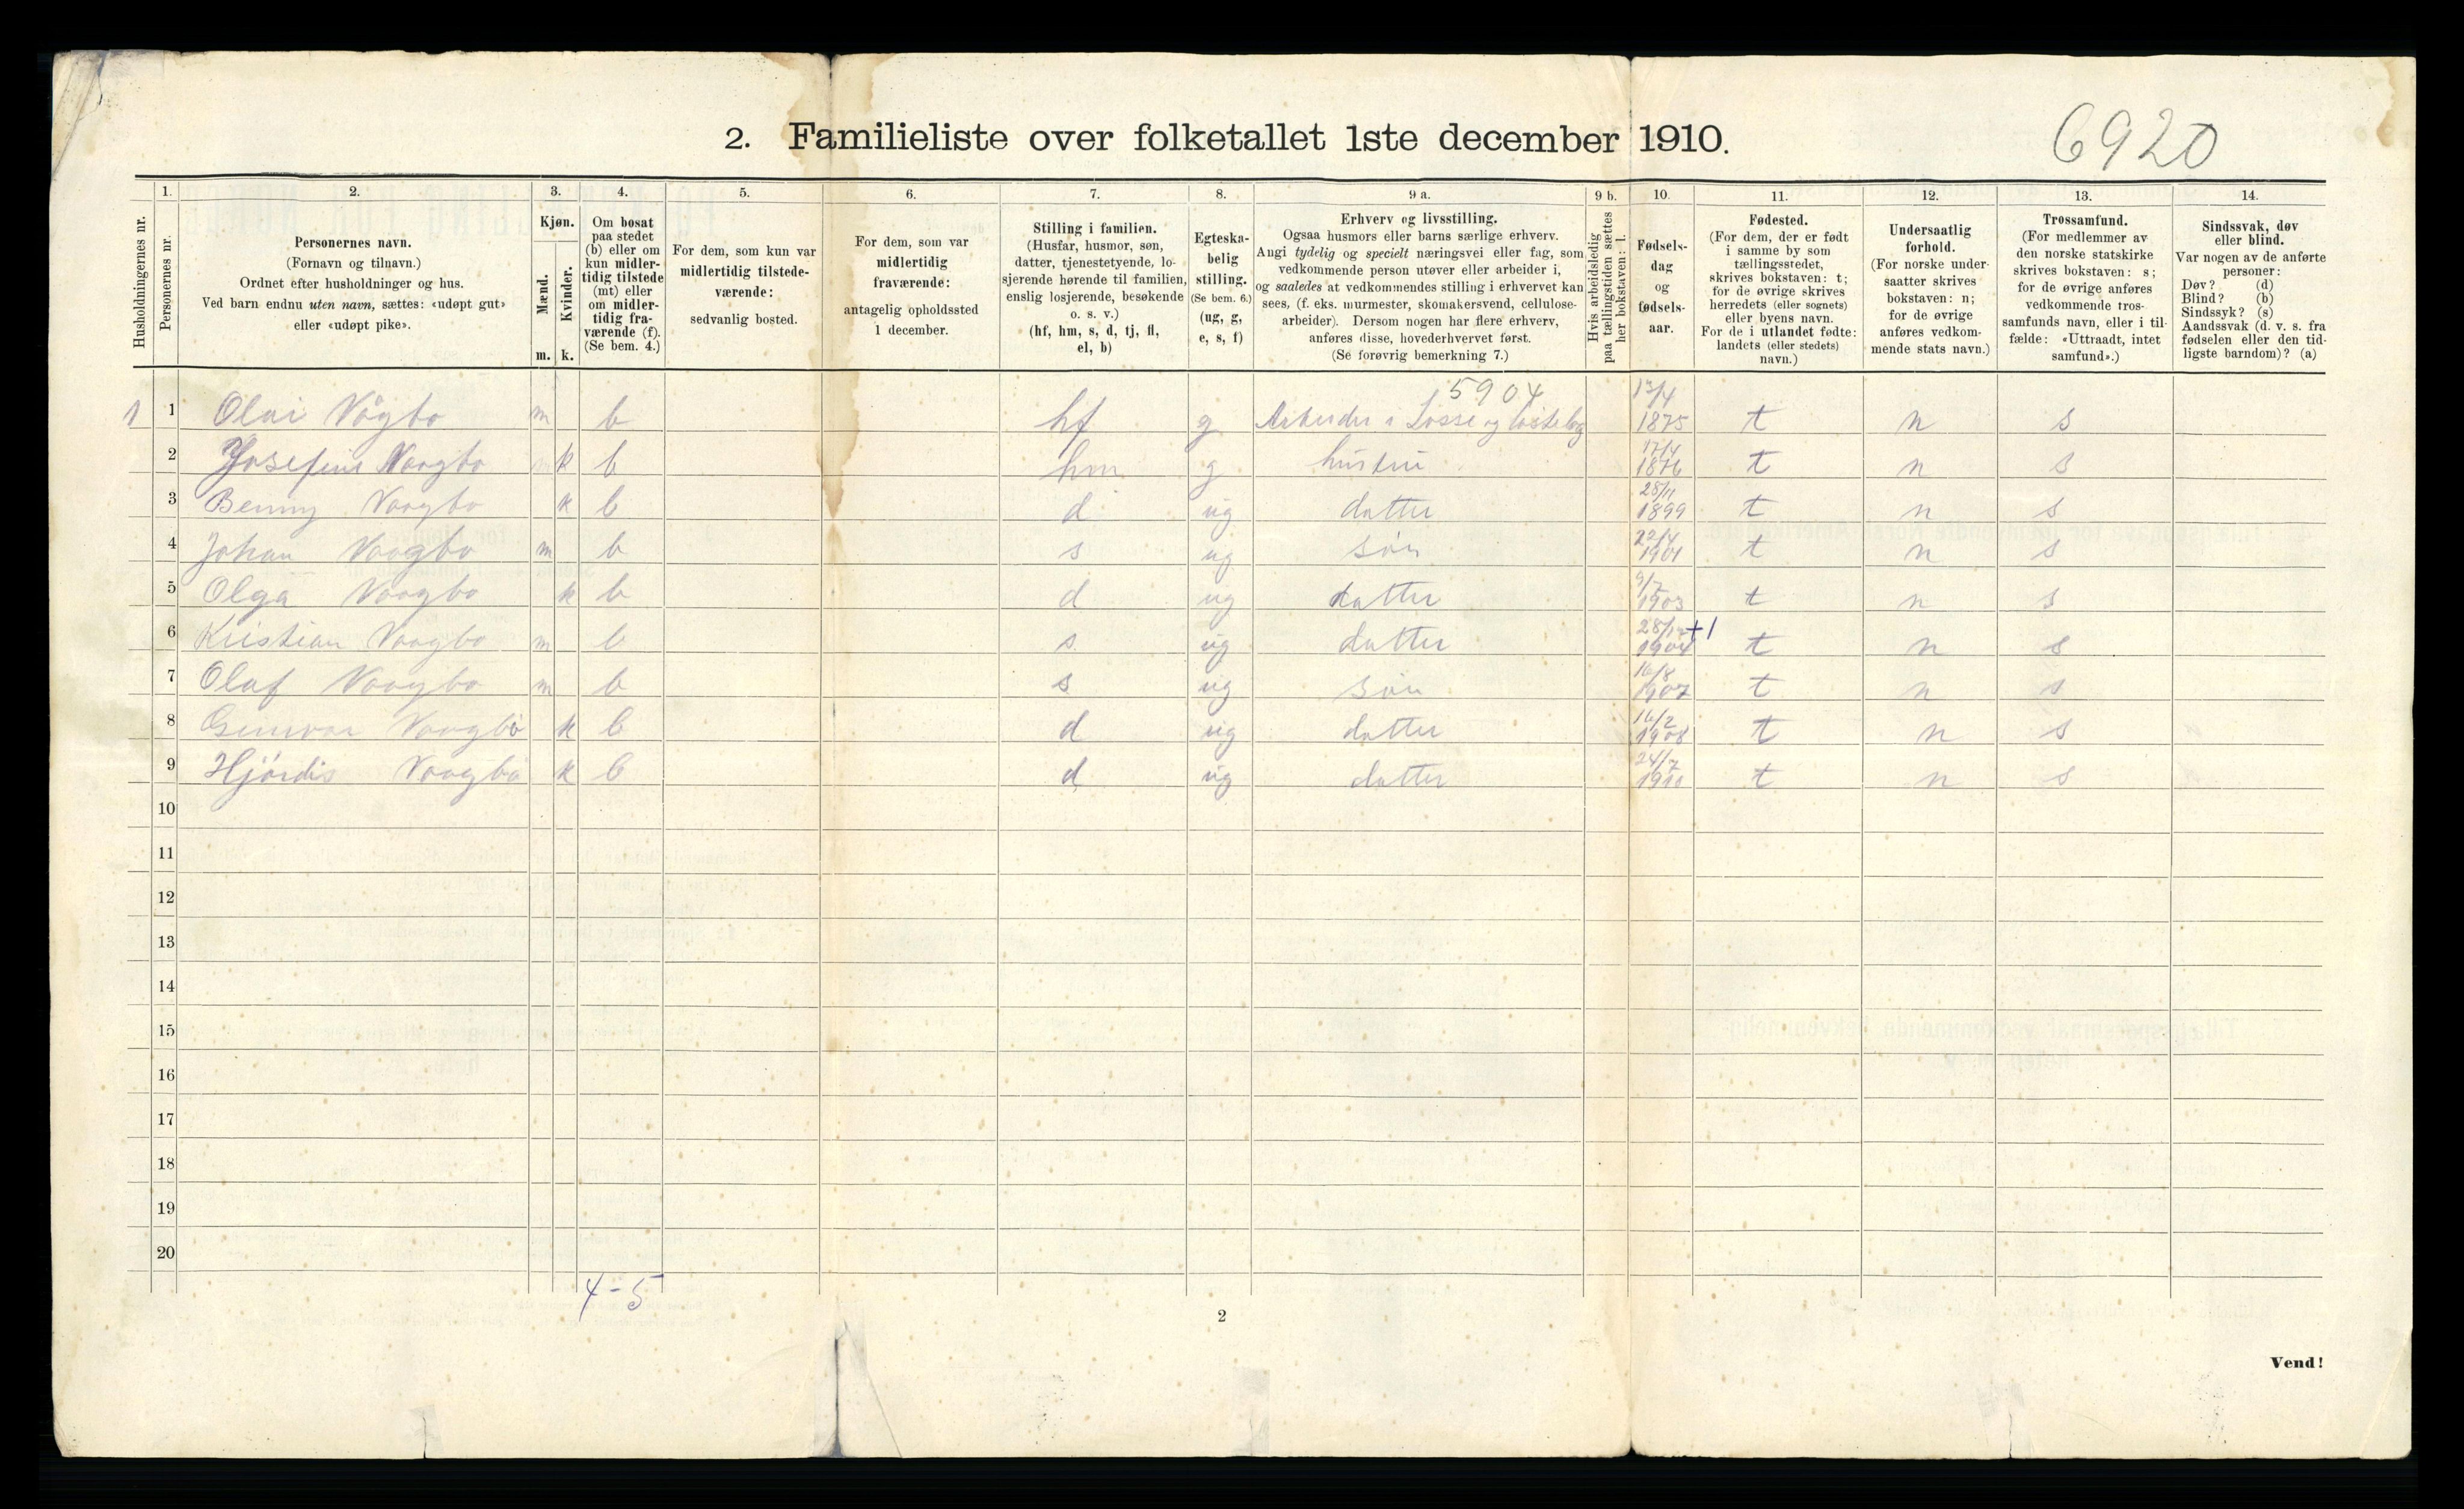 2. Familieliste over folketallet 1ste december 1910.
6920
Husholdningernes nr.
1.
Personernes nr.
2.
Personernes navn.
(Fornavn og tilnavn.)
Ordnet efter husholdninger og hus.
Ved barn endnu uten navn, sættes: «udøpt gut»
eller «udøpt pike».
3.
Kjøn.
Mænd.
Kvinder.
m. k.
4.
Om bosat
paa stedet
(b) eller om
kun midler-
tidig tilstede
(mt) eller
om midler-
tidig fra-
værende (f).
(Se bem. 4.)
5.
For dem, som kun var
midlertidig tilstede-
værende:
sedvanlig bosted.
6.
For dem, som var
midlertidig
fraværende:
antagelig opholdssted
1 december.
7.
Stilling i familien.
(Husfar, husmor, søn,
datter, tjenestetyende, lo-
sjerende hørende til familien,
enslig losjerende, besøkende
o. s. v.)
(hf, hm, s, d, tj, fl,
el, b)
8.
Egteska-
belig
stilling.
(Se bem. 6.)
(ug, g,
e, s, f)
9 a.
Erhverv og livsstilling.
Ogsaa husmors eller barns særlige erhverv.
Angi tydelig og specielt næringsvei eller fag, som
vedkommende person utøver eller arbeider i,
og saaledes at vedkommendes stilling i erhvervet kan
sees, (f. eks. murmester, skomakersvend, cellulose-
arbeider). Dersom nogen har flere erhverv,
anføres disse, hovederhvervet først.
(Se forøvrig bemerkning 7.)
9 b.
Hvis arbeidsledig
paa tællingstiden sættes
her bokstaven: l.
10.
Fødsels-
dag
og
fødsels-
aar.
11.
Fødested.
(For dem, der er født
i samme by som
tællingsstedet,
skrives bokstaven: t;
for de øvrige skrives
herredets (eller sognets)
eller byens navn.
For de i utlandet fødte:
landets (eller stedets)
navn.)
12.
Undersaatlig
forhold.
(For norske under-
saatter skrives
bokstaven: n;
for de øvrige
anføres vedkom-
mende stats navn.)
13.
Trossamfund.
(For medlemmer av
den norske statskirke
skrives bokstaven: s;
for de øvrige anføres
vedkommende tros-
samfunds navn, eller i til-
fælde: «Uttraadt, intet
samfund».)
14.
Sindssvak, døv
eller blind.
Var nogen av de anførte
personer:
Døv? (d)
Blind? (b)
Sindssyk? (s)
Aandssvak (d. v. s. fra
fødselen eller den tid-
ligste barndom)? (a)
5904
1 1 Olai Vågbo m b hf g Arbeider i Losse og 1875 t n s
2 Josefine Vaagbo k b hm g hustru 17/4 1876 t n s
3 Benny Vaagbo k b d ug datter 28/11 1899 t n s
4 Johan Vaagbo m b s ug søn 22/4 1901 t n s
5 Olga Vaagbo k b d ug datter 9/7 1903 t n s
6 Kristian Vaagbo m b s ug datter 28/12 1904 +1 t n s
7 Olaf Vaagbo m b s ug søn 16/8 1907 t n s
8 Gunvor Vaagbo k b d ug datter 16/2 1908 t n s
9 Hjørdis Vaagbo k b d ug datter 24/7 1910 t n s
10
11
12
13
14
15
16
17
18
19
20
4-5
2
Vend!